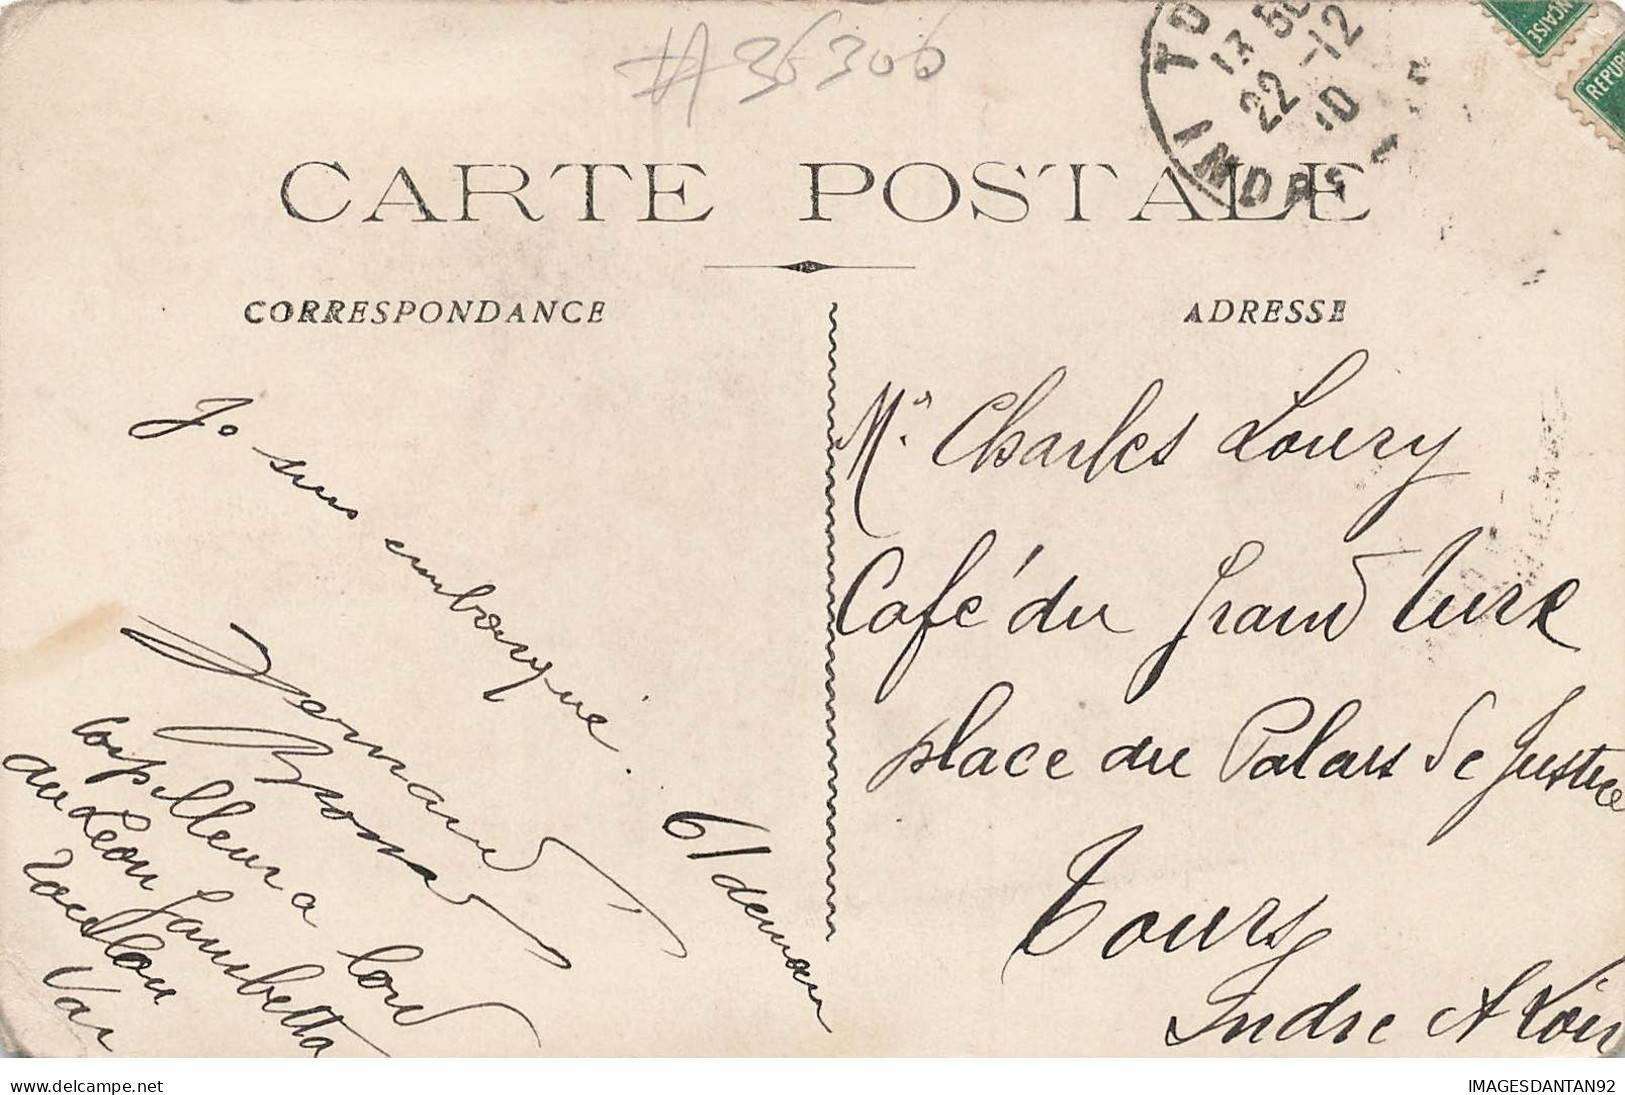 #36306
13 50
22-12
10
INDRE
FRANÇAISE
REPUB
CARTE POSTALE
CORRESPONDANCE
ADRESSE
Je suis embarqué
Fernand
torpilleur a bord
du Léon Gambetta
Toulon
Var
6/ deman
Mr. Charles Loury
Café du Grand Turc
place du Palais de Justice
Tours
Indre et Loir
IMAGESDANTAN92